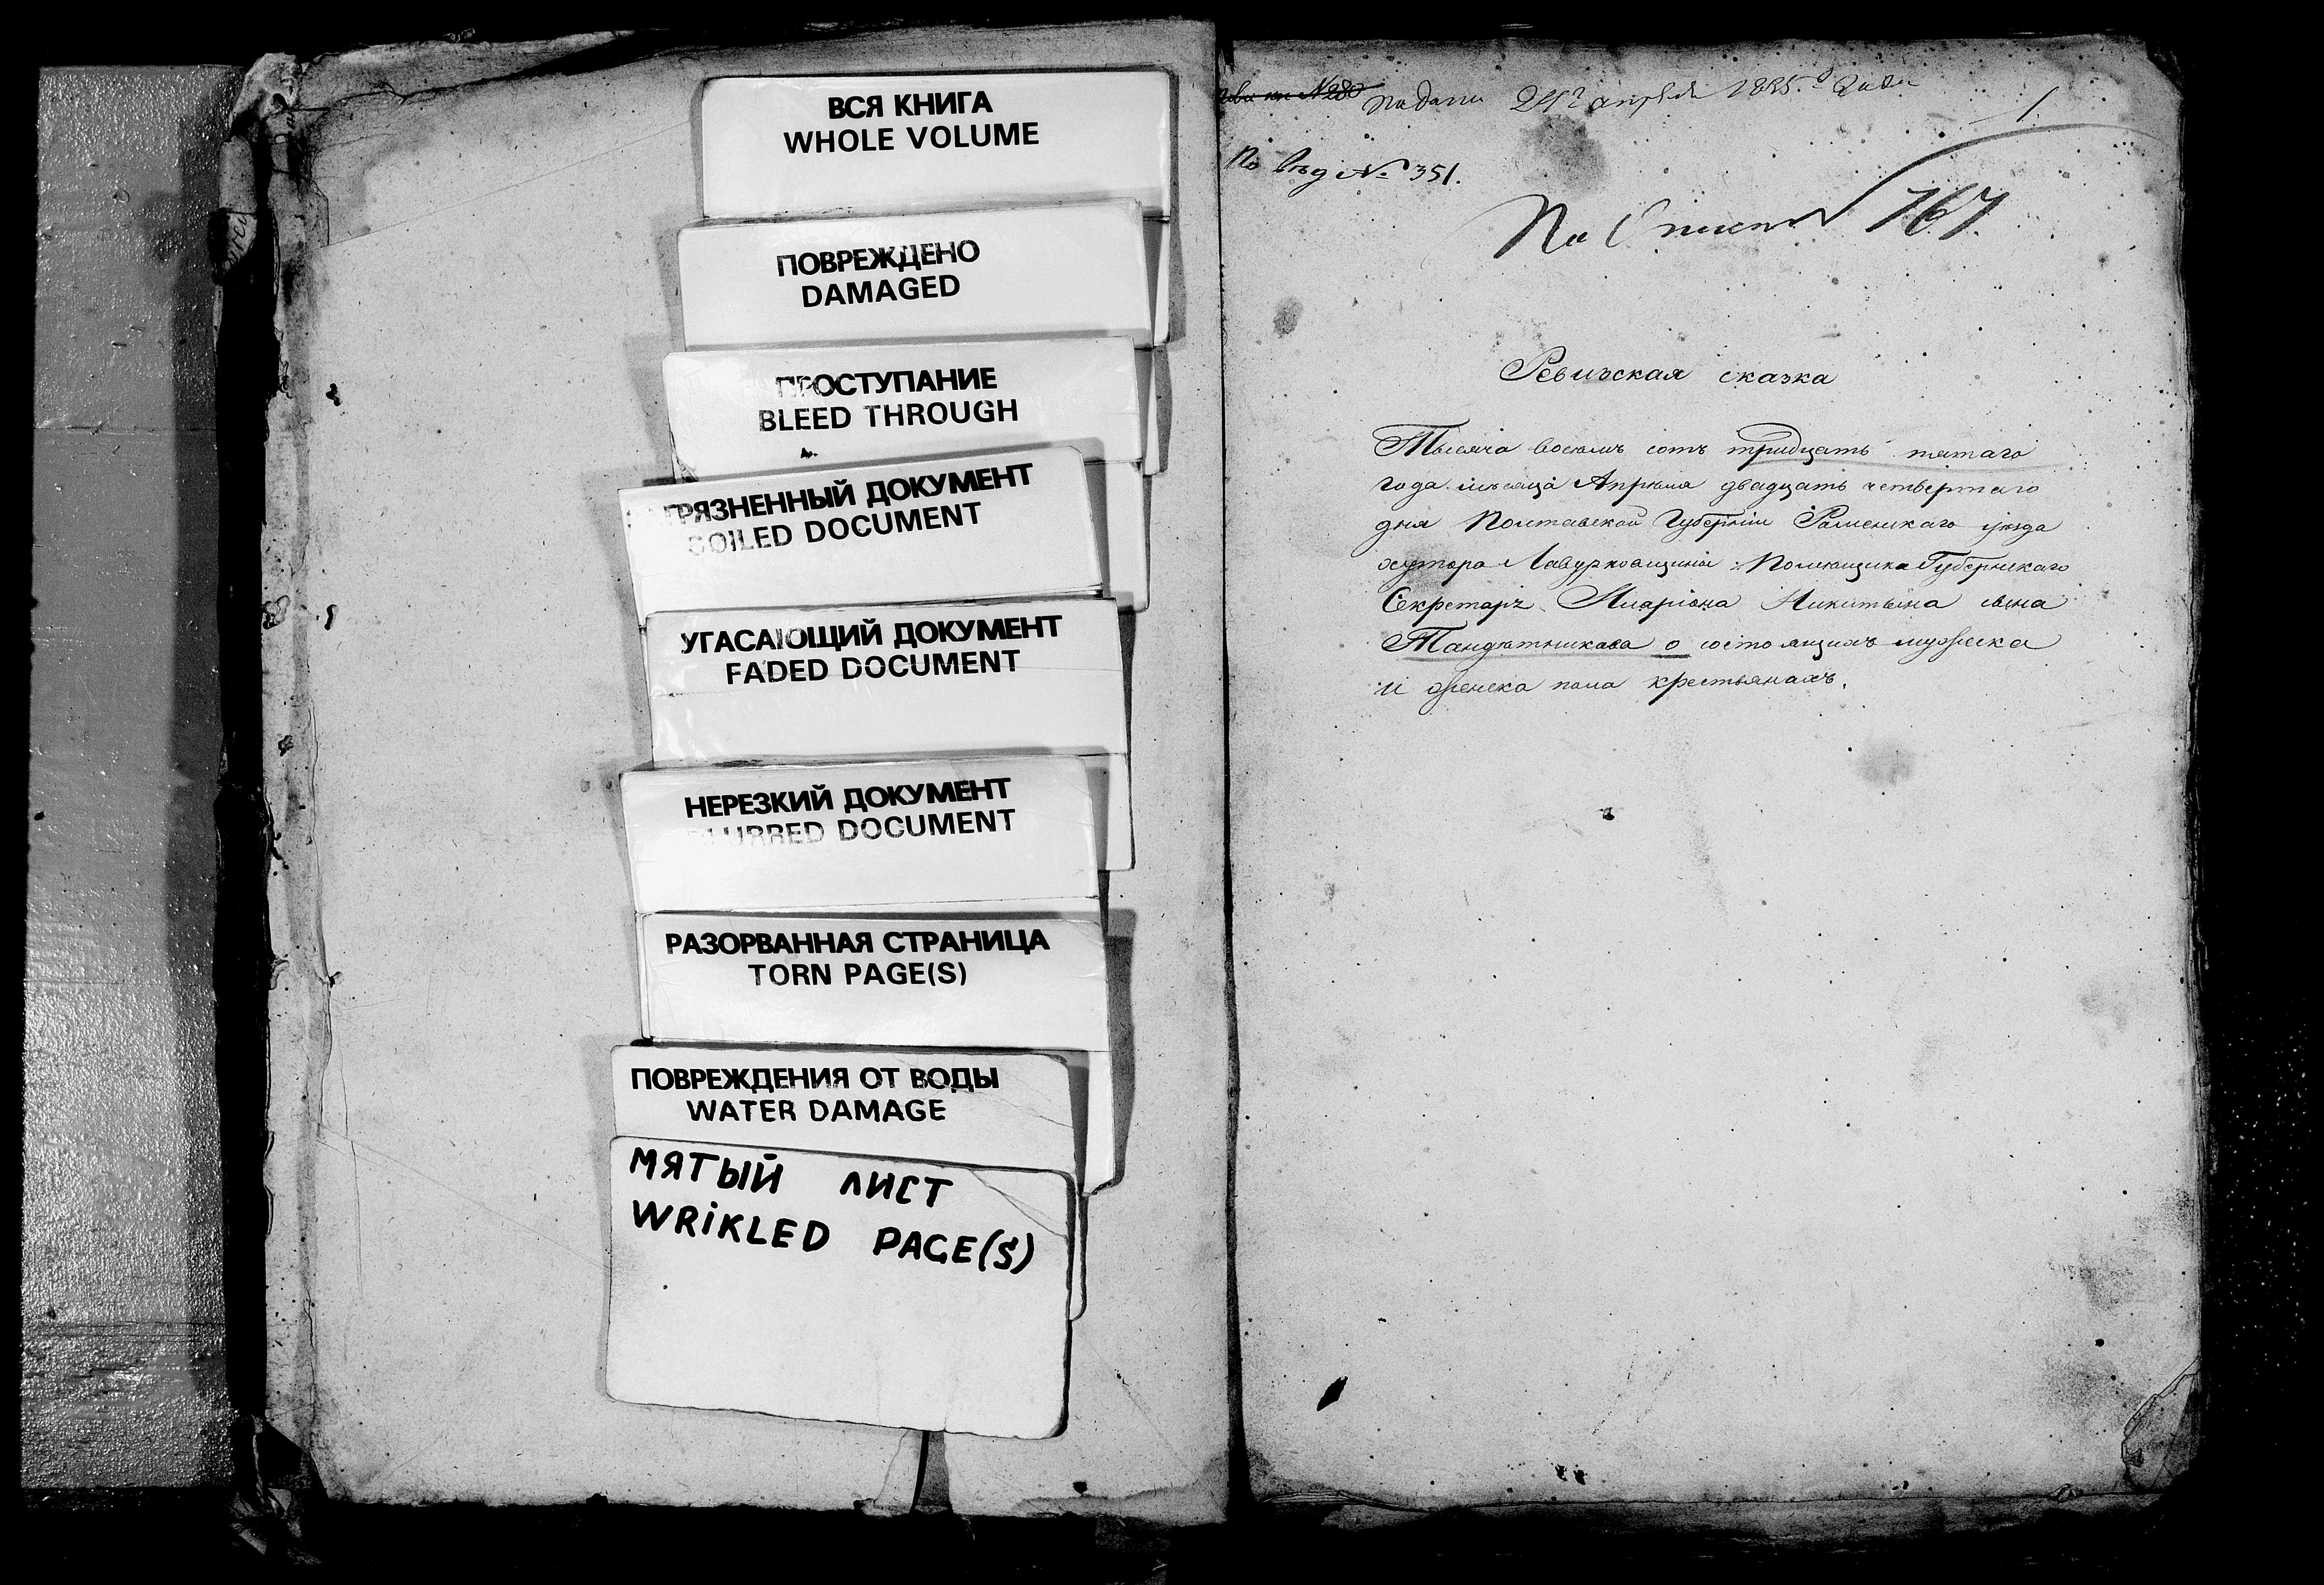 ВСЯ КНИГА
WHOLE VOLUME
ПОВРЕЖДЕНО
DAMAGED
ПРОСТУПАНИЕ
BLEED THROUGH
ЗАГРЯЗНЕННЫЙ ДОКУМЕНТ
SOILED DOCUMENT
УГАСАЮЩИЙ ДОКУМЕНТ
FADED DOCUMENT
НЕРЕЗКИЙ ДОКУМЕНТ
BLURRED DOCUMENT
РАЗОРВАННАЯ СТРАНИЦА
TORN PAGE(S)
ПОВРЕЖДЕНИЯ ОТ ВОДЫ
WATER DAMAGE
МЯТЫЙ ЛИСТ
WRiKLED PAGE(S)
№280 Подана 24го апреля 1835го года
1.
По вед №351.
По 767.
Ревизская сказка
Тысяча восемь сотъ тридцать пятаго
года месяца Апреля двадцать четвертаго
дня Полтавской Губернии Роменскаго уезда
хутора Лавурковщины Помещика Губернскаго
Секретаря Илариона Никитина сына
о состоящихъ мужеска
и женска пола крестьянахъ.